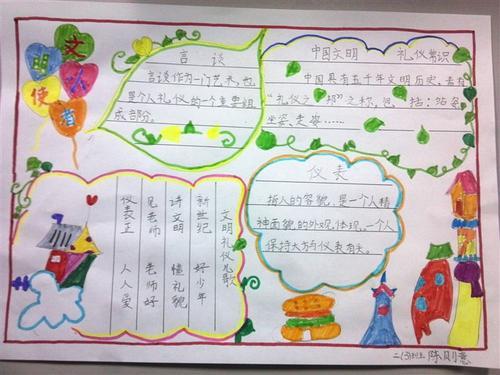 文
明
小
使
者
言 谈
言谈作为一门艺术,也
是个人礼仪的一个重要组
成部分。
中国文明 礼仪常识
中国具有五千年文明历史,素有
“礼仪之邦”之称,包括:站姿
坐姿、走姿……
仪表
指人的容貌,是一个人精
神面貌的外观体现,一个人
保持大方与仪表有关。
文明礼仪儿歌
新世纪 好少年
讲文明 懂礼貌
见老师 老师好
仪表正 人人爱
二(3)班 陈则慧